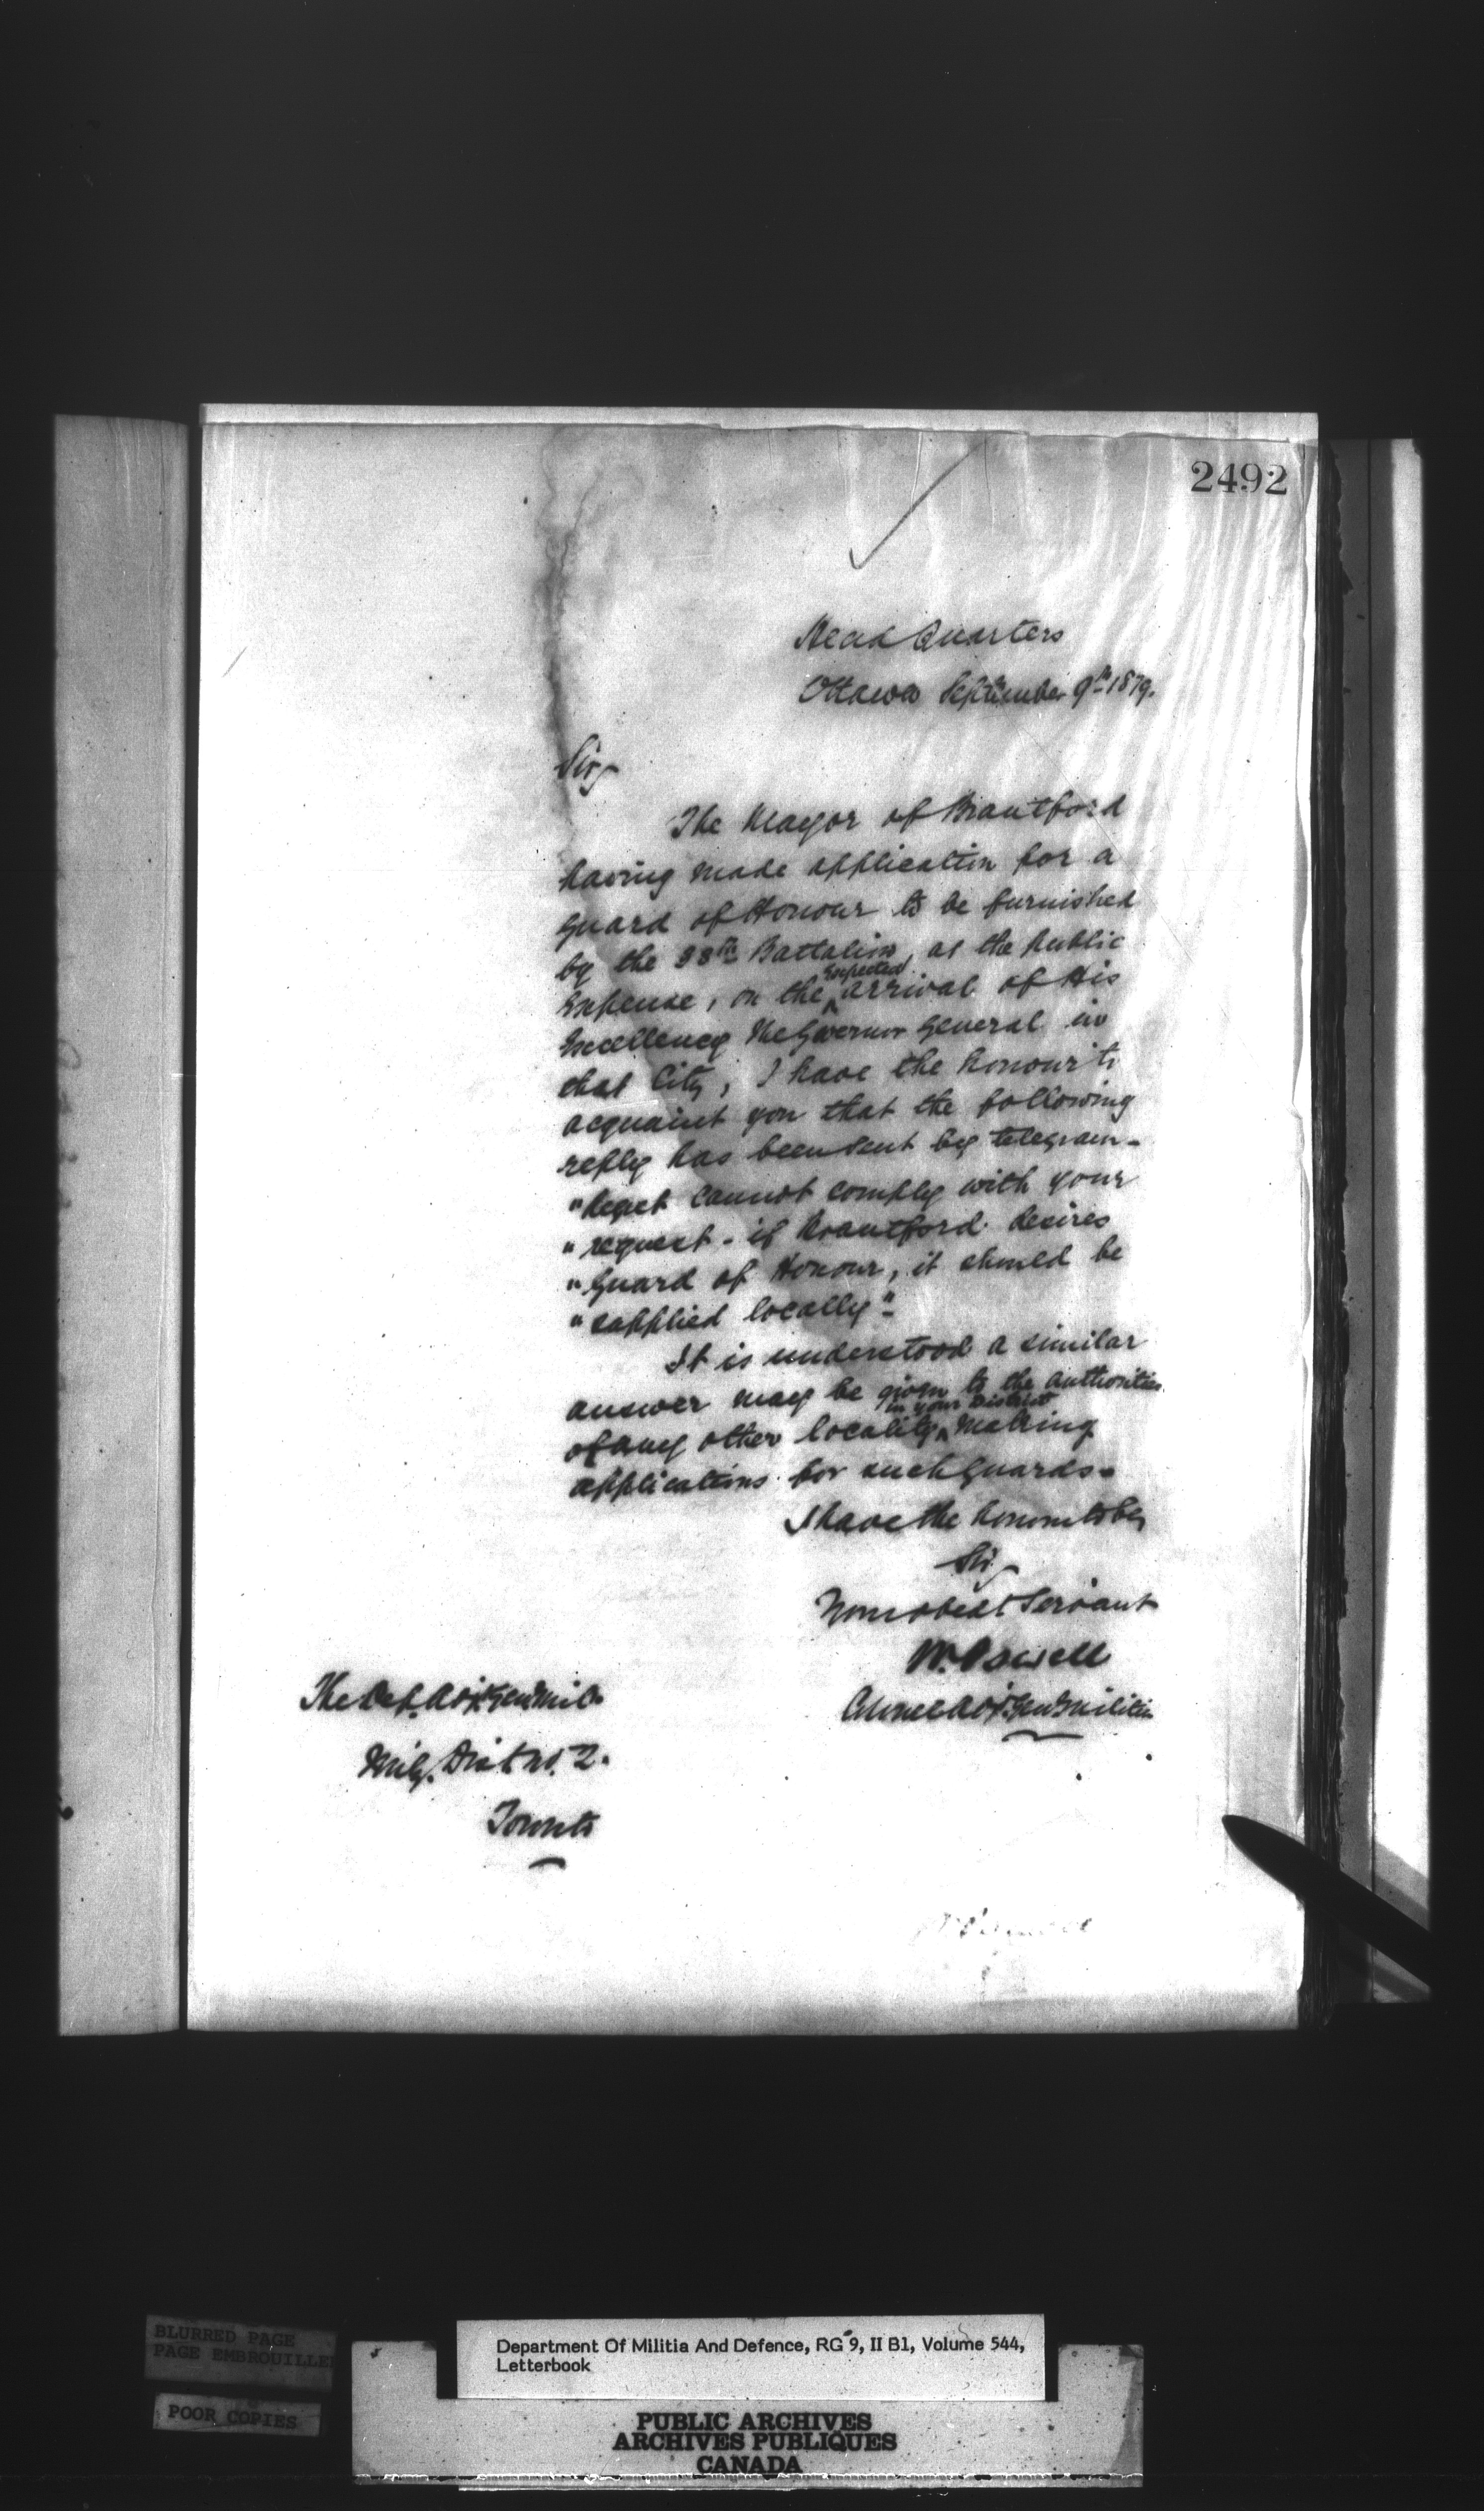 2492
Head Quarters
Ottawa September 9th 1879.
Sir,
The Mayor of Brantford
having made application for a
Guard of Honour to be furnished
by the 38th Battalion, at the Public
Expense, on the expected arrival of His
Excellency The Governor General in
that City, I have the honour to
acquaint you that the following
reply has been sent by telegram -
"Regret cannot comply with your
"request - if Brantford desires
"Guard of Honour, it should be
"supplied locally" -
It is understood a similar
answer may be given to the authorities
of any other locality in your District making
applications for such Guards.
I have the honour to be,
Sir,
Your obedt Servant
W. Powell
Colonel Adjt. Genl Militia
The Dep. Adjt Genl Mila
Mily. Dist No. 2.
Toronto
BLURRED PAGE
PAGE EMBROUILLEE
POOR COPIES
Department Of Militia And Defence, RG 9, II B1, Volume 544,
Letterbook
PUBLIC ARCHIVES
ARCHIVES PUBLIQUES
CANADA